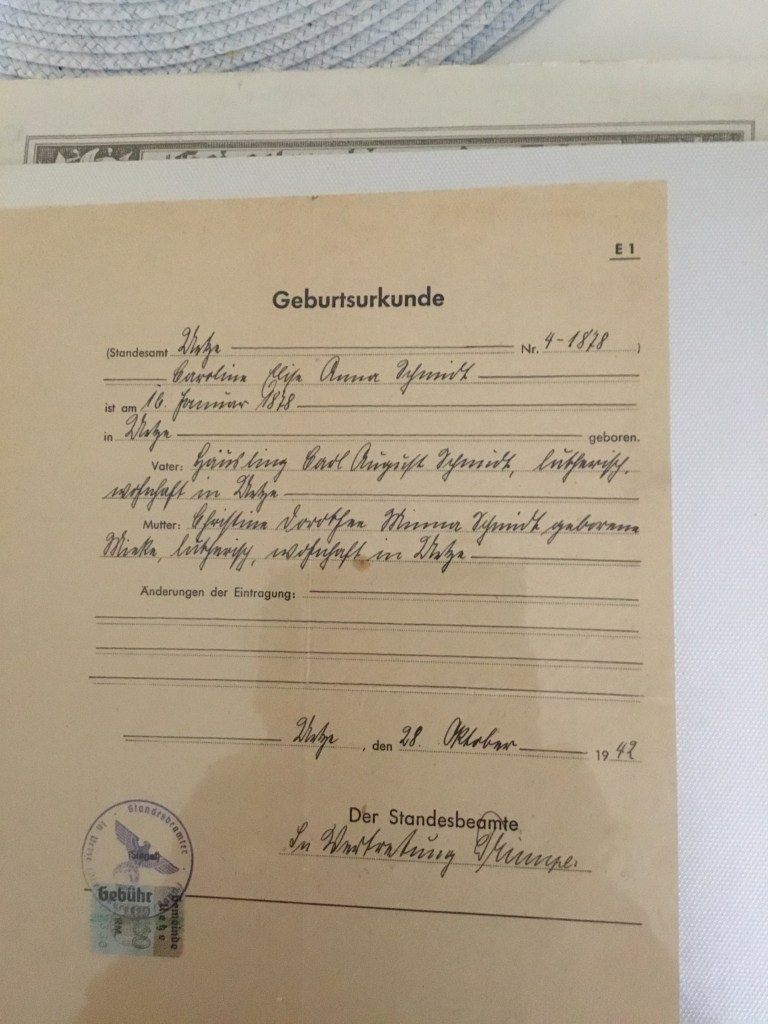 E 1
Geburtsurkunde
(Standesamt Uetze Nr. 4-1878)
Caroline Elise Anna Schmidt
ist am 16. Januar 1878
in Uetze geboren.
Vater: Häusling Carl August Schmidt, lutherisch,
wohnhaft in Uetze
Mutter: Christine Dorothee Minna Schmidt geborene
Mieke, lutherisch, wohnhaft in Uetze
Änderungen der Eintragung:
Uetze, den 28. Oktober 1942
Der Standesbeamte
In Vertretung
Standesbeamter
Gebühr
RM.
Gemeinde